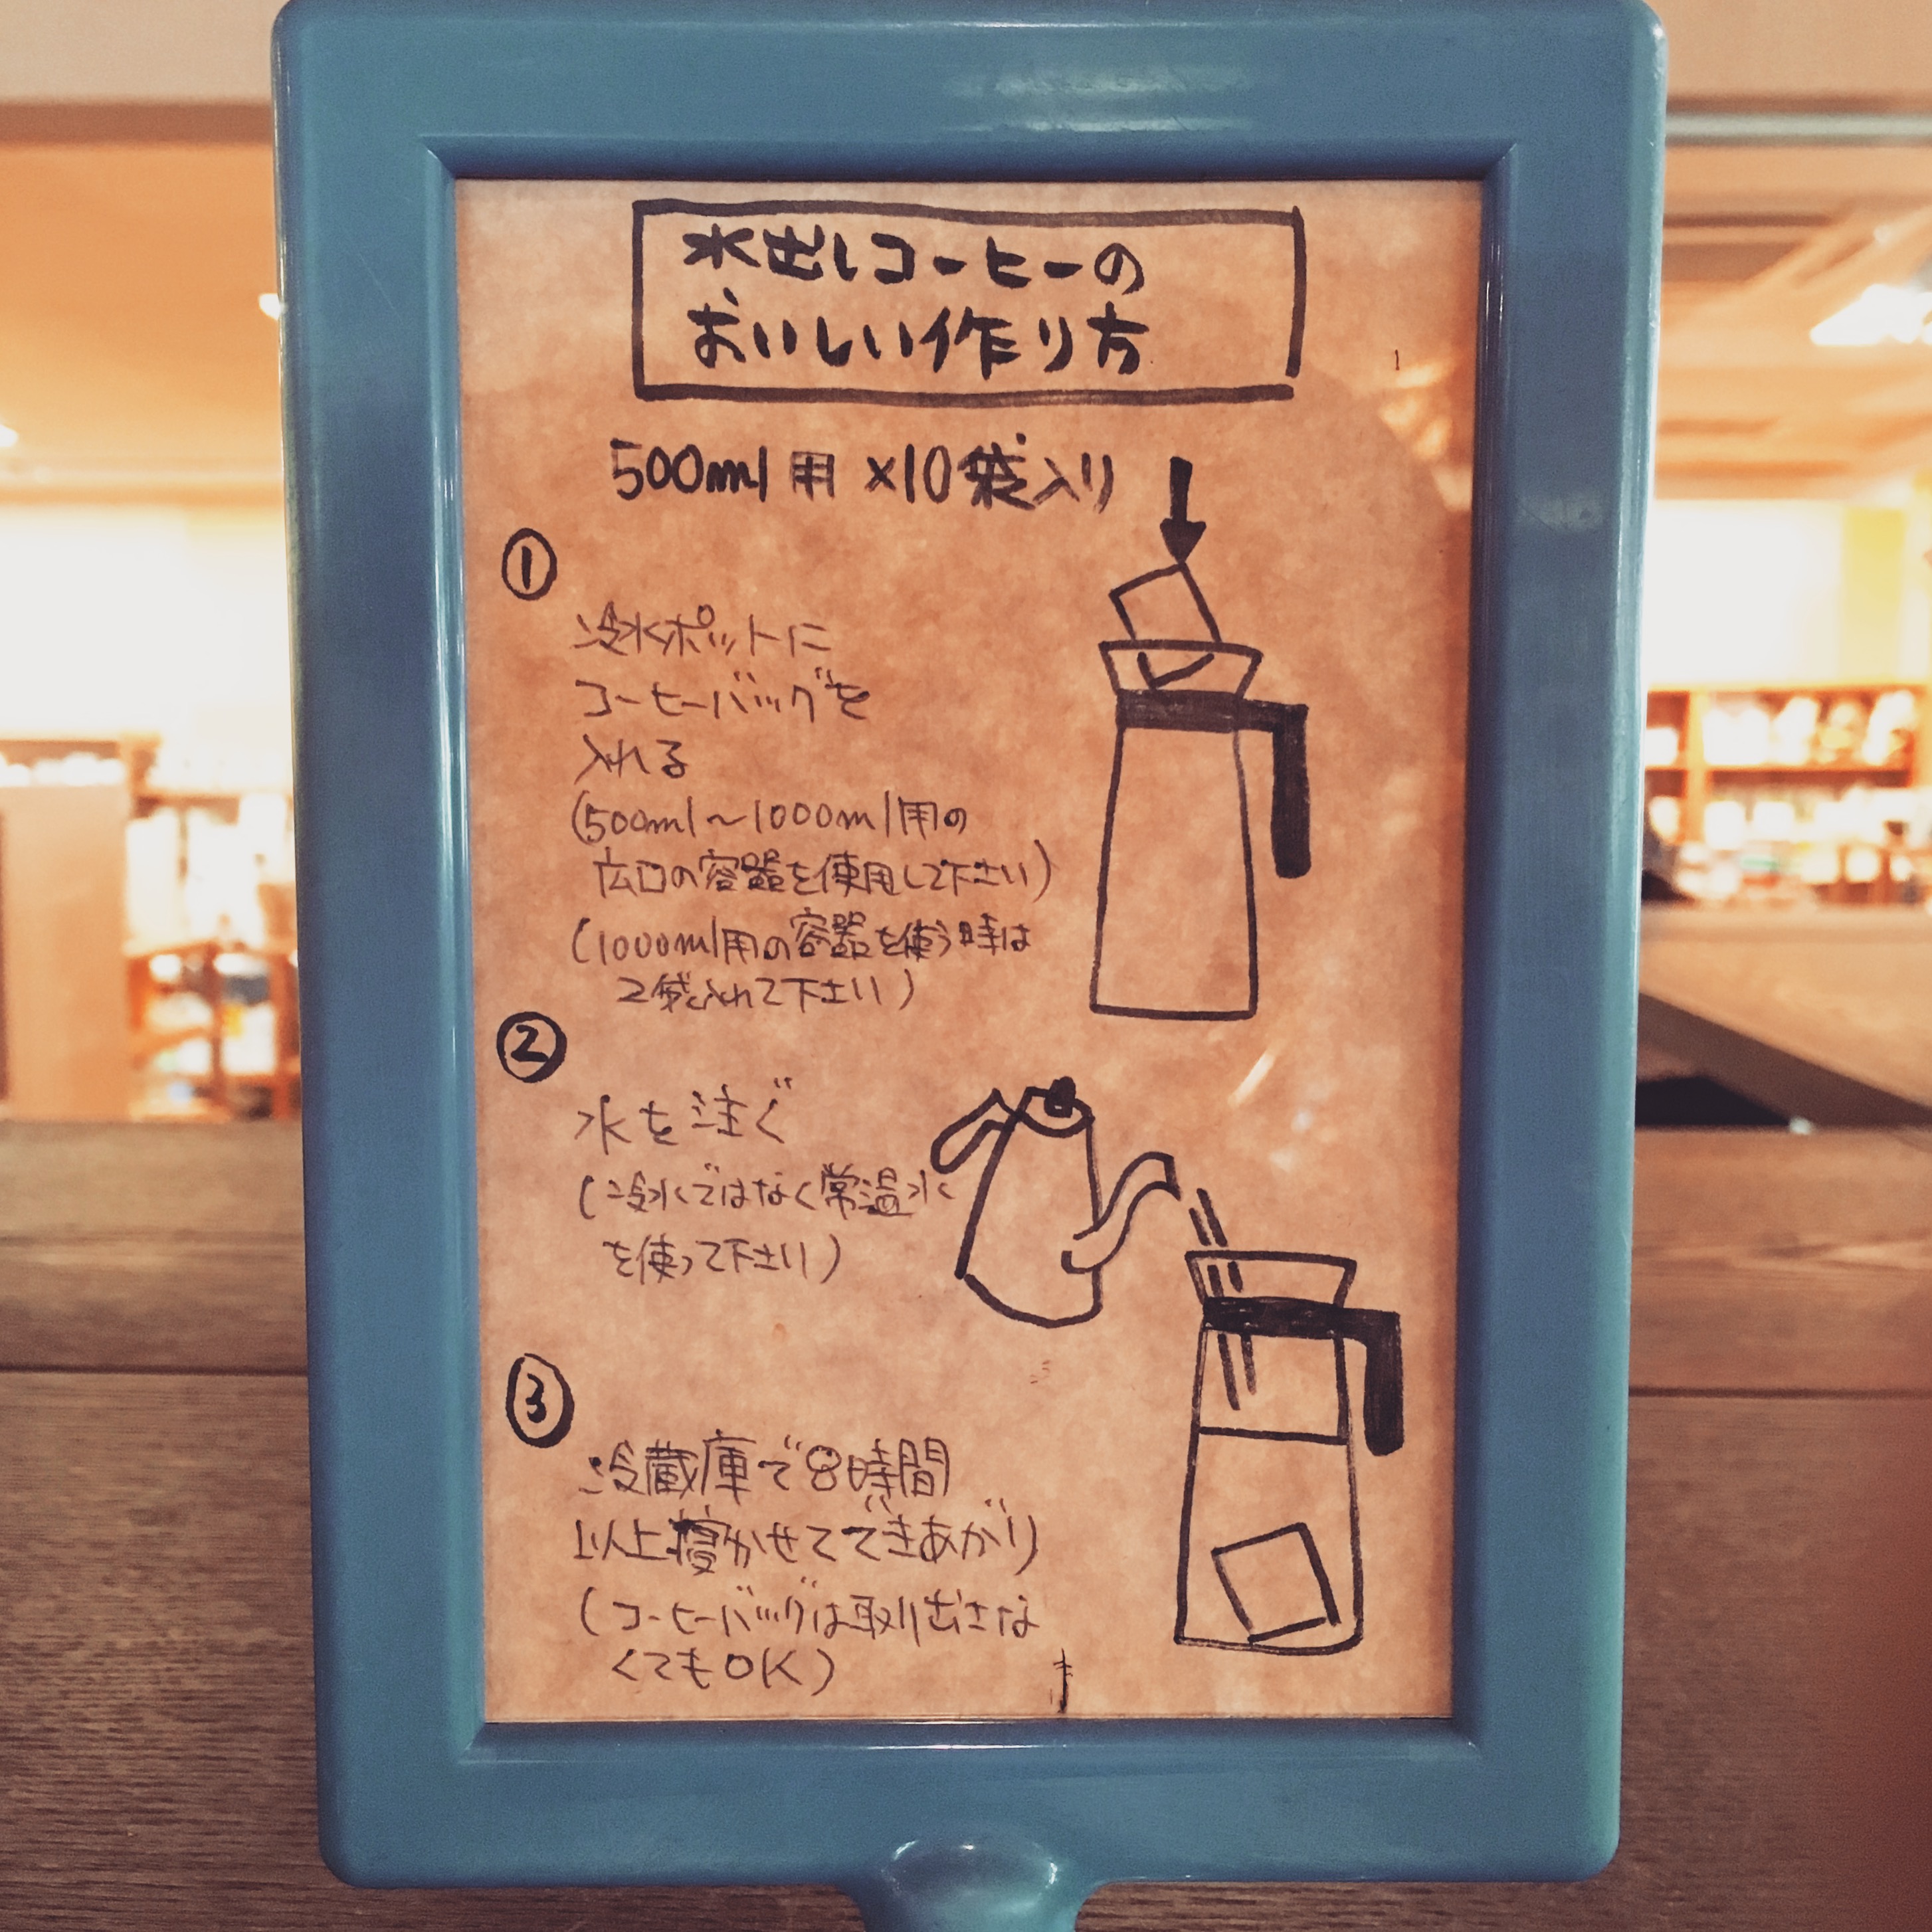 水出しコーヒーの
おいしい作り方
500ml用 ×10袋入り
①
冷水ポットに
コーヒーバッグを
入れる
(500ml〜1000ml用の
広口の容器を使用して下さい)
(1000ml用の容器を使う時は
2袋入れて下さい)
②
水を注ぐ
(冷水ではなく常温水
を使って下さい)
③
冷蔵庫で8時間
以上寝かせてできあがり
(コーヒーバッグは取り出さな
くてもOK)